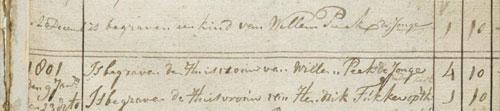 20 Decem is begraven een kind van Willem Peek de Jonge 1 10
1801 Is begraven de Huisvrouw van Willem Peek de Jonge 4 10
Is begraven de Huisvrouw van Hendrik 1 10